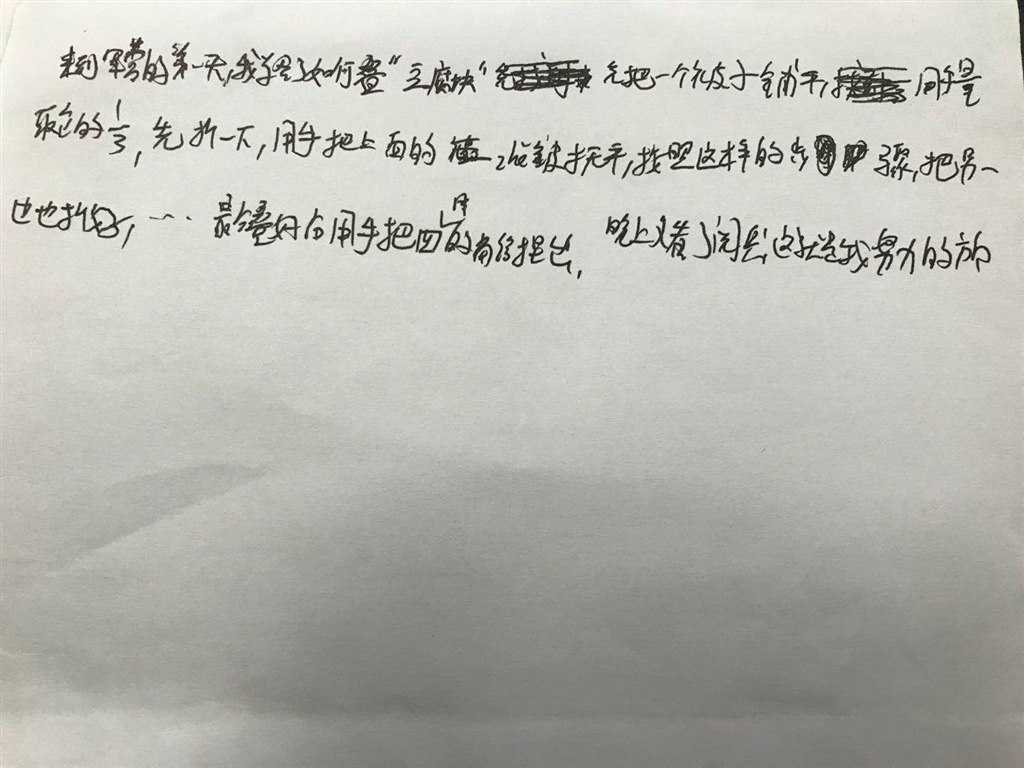 来到军营的第一天,我学习了如何叠“豆腐块”先把一个被子铺平,用手量
取它的1/3,先折一下,用手把上面的褶皱抚平,按照这样的步骤,把另一
边也折好,… 最后叠好后用手把四周的角给捏出, 晚上又看了阅兵,这就是我努力的方向